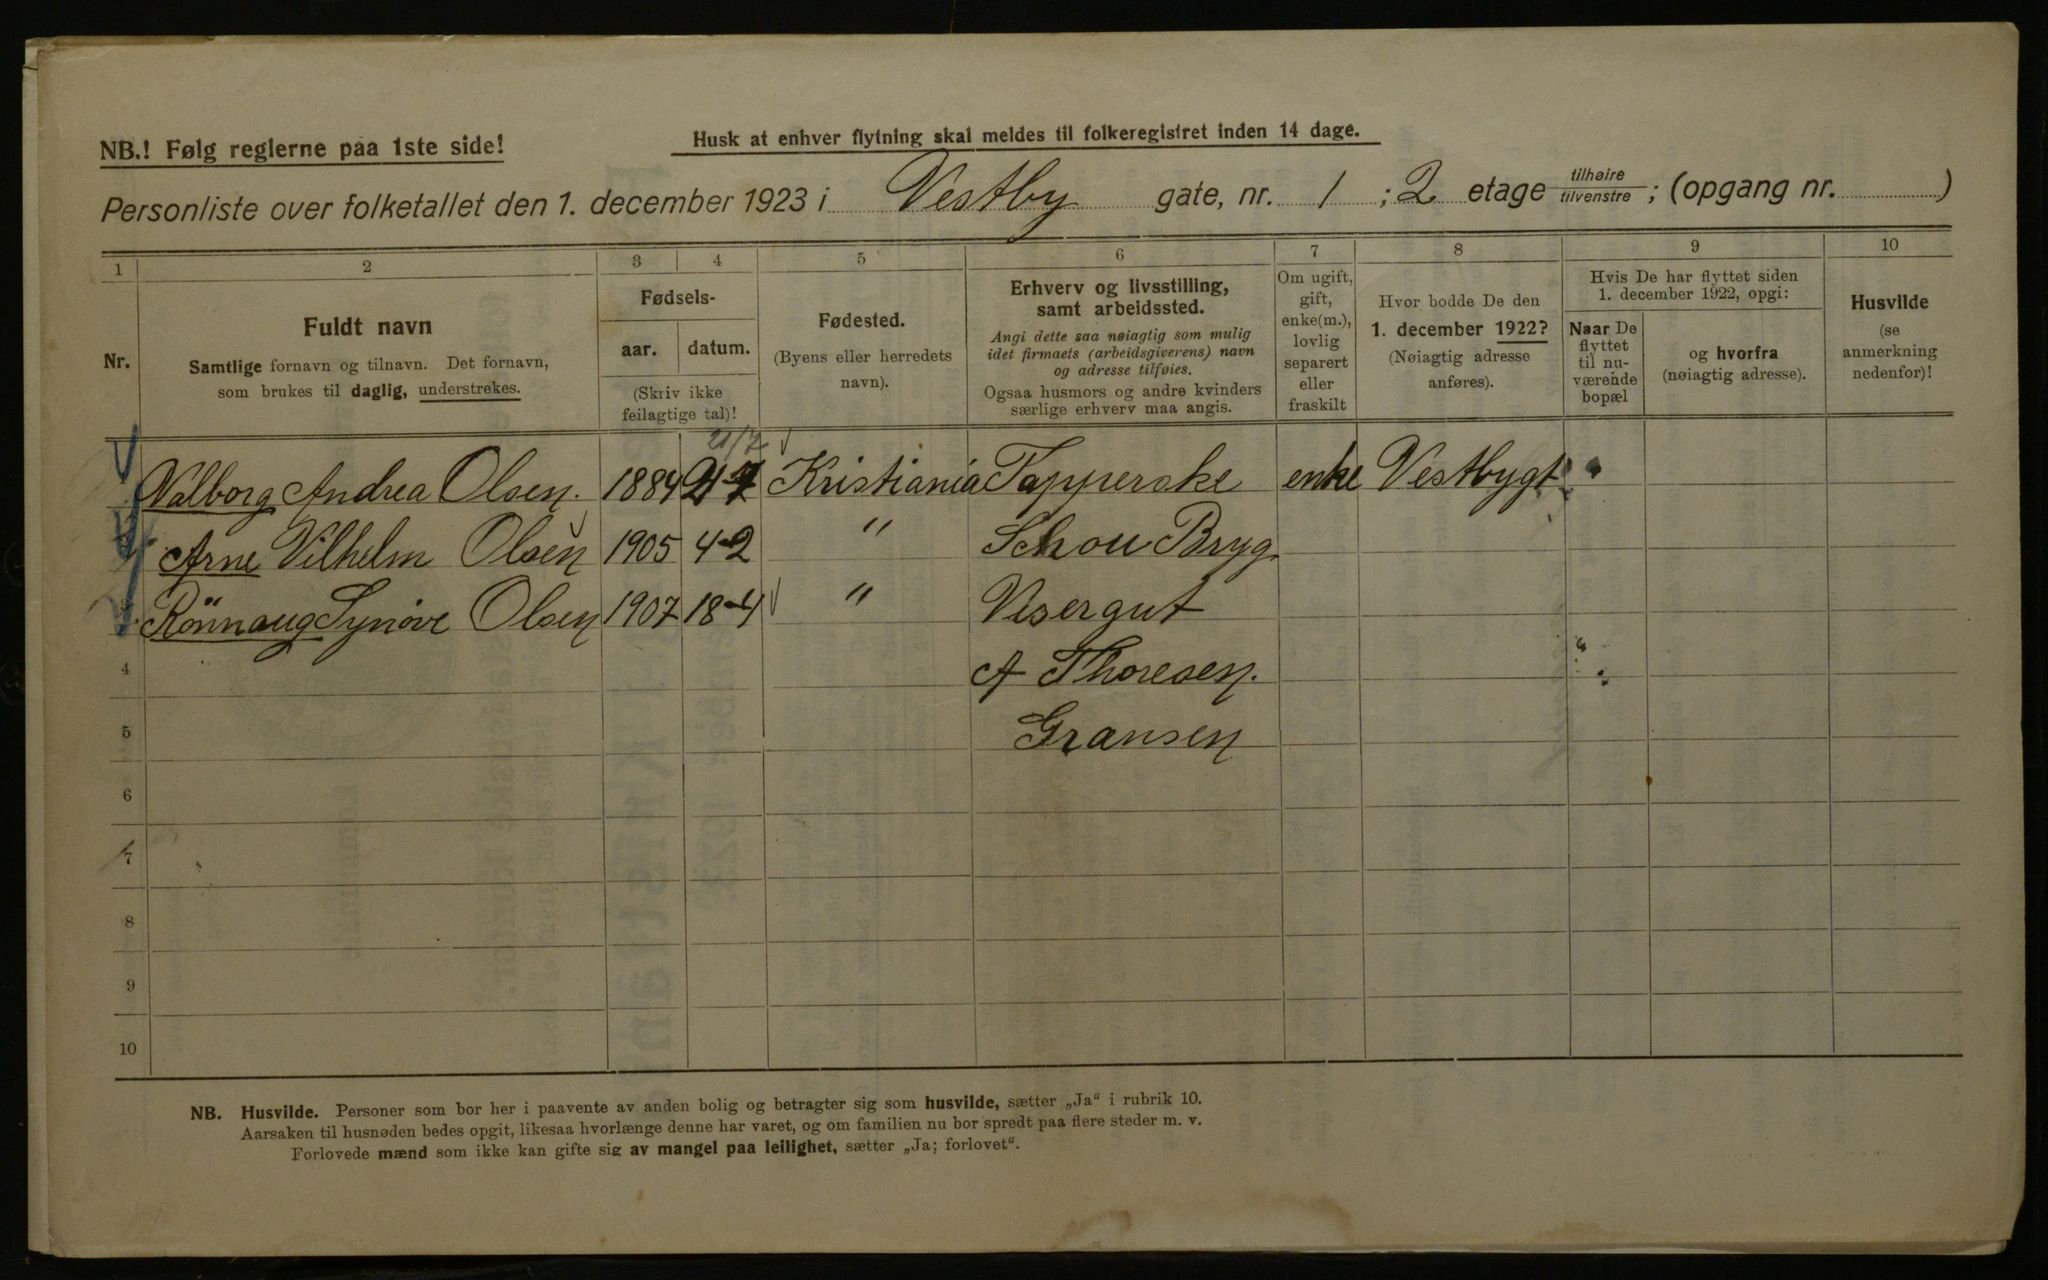 NB.! Følg reglerne paa 1ste side!
Husk at enhver flytning skal meldes til folkeregistret inden 14 dage.
Personliste over folketallet den 1. december 1923 i Vestby gate, nr. 1 ; 2 etage tilhøire/tilvenstre ; (opgang nr. )
1 2 3 4 5 6 7 8 9 10
Nr.
Fuldt navn
Samtlige fornavn og tilnavn. Det fornavn,
som brukes til daglig, understrekes.
Fødsels-
aar. datum.
(Skriv ikke
feilagtige tal)!
Fødested.
(Byens eller herredets
navn).
Erhverv og livsstilling,
samt arbeidssted.
Angi dette saa nøiagtig som mulig
idet firmaets (arbeidsgiverens) navn
og adresse tilføies.
Ogsaa husmors og andre kvinders
særlige erhverv maa angis.
Om ugift,
gift,
enke(m.),
lovlig
separert
eller
fraskilt
Hvor bodde De den
1. december 1922?
(Nøiagtig adresse
anføres).
Hvis De har flyttet siden
1. december 1922, opgi:
Naar De
flyttet
til nu-
værende
bopæl
og hvorfra
(nøiagtig adresse).
Husvilde
(se
anmerkning
nedenfor)!
21/7
Valborg Andrea Olsen. 1884 21-7 Kristiania Tapperske enke Vestbygt
Arne Vilhelm Olsen 1905 4-2 " Schou Bryg
Rönnaug Synöve Olsen 1907 18-4 " Visergut
4 A Thoresen.
5 Gransen
6
7
8
9
10
NB. Husvilde. Personer som bor her i paavente av anden bolig og betragter sig som husvilde, sætter „Ja“ i rubrik 10.
Aarsaken til husnøden bedes opgit, likesaa hvorlænge denne har varet, og om familien nu bor spredt paa flere steder m. v.
Forlovede mænd som ikke kan gifte sig av mangel paa leilighet, sætter „Ja; forlovet“.